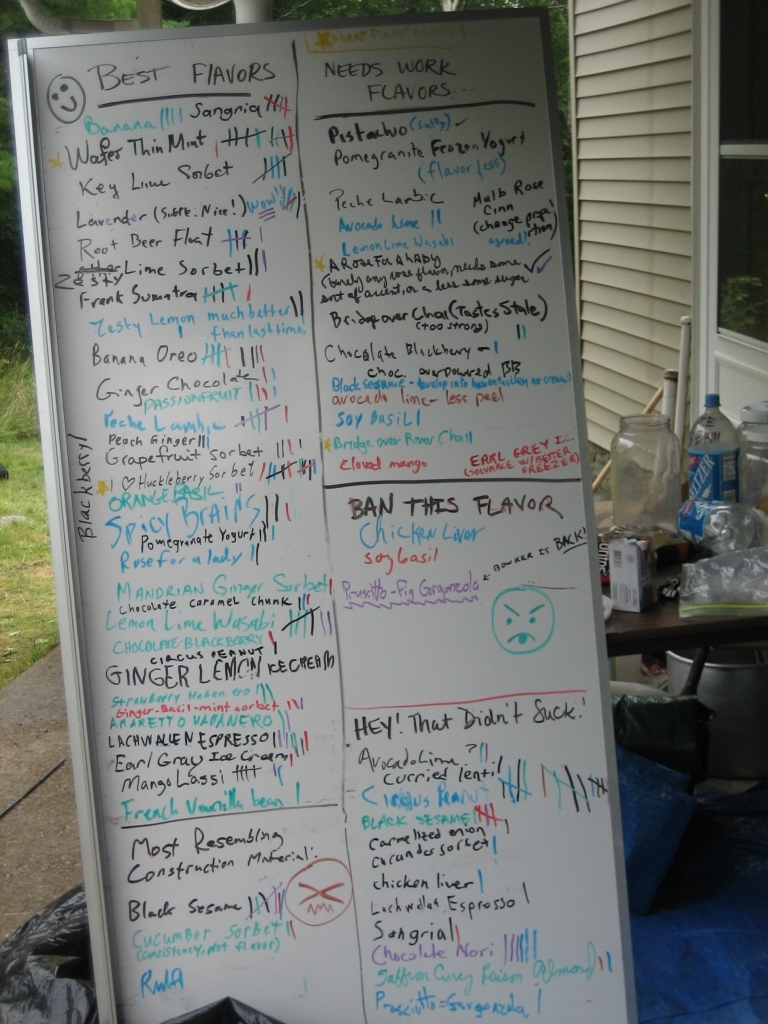 BEST FLAVORS
Banana |||| Sangria
Wafer Thin Mint
Key Lime Sorbet
Lavender (Subtle. Nice!) WOW!
Root Beer Float
Zesty Lime Sorbet
Frank Sumatra
Zesty Lemon much better
than last time
Banana Oreo
Ginger Chocolate
PASSIONFRUIT
Peche Lambic
Peach Ginger
Grapefruit sorbet
I ♡ Huckleberry Sorbet
Blackberry
ORANGE BASIL
SPICY BRAINS
Pomegranate Yogurt
Rose for a lady
MANDRIAN Ginger Sorbet
chocolate caramel chunk
Lemon Lime Wasabi
CHOCOLATE-BLACKBERRY
CIRCUS PEANUT
GINGER LEMON ICE CREAM
STRAWBERRY Habenero
Ginger-Basil-mint sorbet
AMARETTO HABANERO
LACHWALLEN ESPRESSO
Earl Gray Ice Cream
Mango Lassi
French Vanilla bean
Most Resembling
Construction Material:
Black Sesame
Cucumber Sorbet
(consistency, not flavor)
NEEDS WORK
FLAVORS...
Pistachio (salty)
Pomegranite Frozen Yogurt
(flavorless)
Peche Lambic
Mulb Rose
Cinn
(change propo
rtion)
agreed!
Avocado Lime
Lemon Lime Wasabi
A Rose For A Lady
(barely any rose flavor, needs some
sort of accent, or a less some sugar
Bridge over Chai (Tastes Stale)
(too strong)
Chocolate Blackberry -
choc. overpowered BB
Black sesame - develop into
avocado lime - less peel
SOY BASIL
Bridge over River Chai
cloved mango
EARL GREY I.C.
(SOLVABLE W/ BETTER
FREEZER)
BAN THIS FLAVOR
Chicken Liver
soy basil
Prusciutto-Fig Gorgonzola
BOWKER IS BACK!
HEY! That Didn't Suck!
Avocado Lime?
curried lentil
CIRCUS PEANUT
BLACK SESAME
Carmelized onion
Curander sorbet
chicken liver
Lachwallen Espresso
Sangria
Chocolate Nori
Saffron Curry Raison Almond
Prosciutto-Gorgonzola